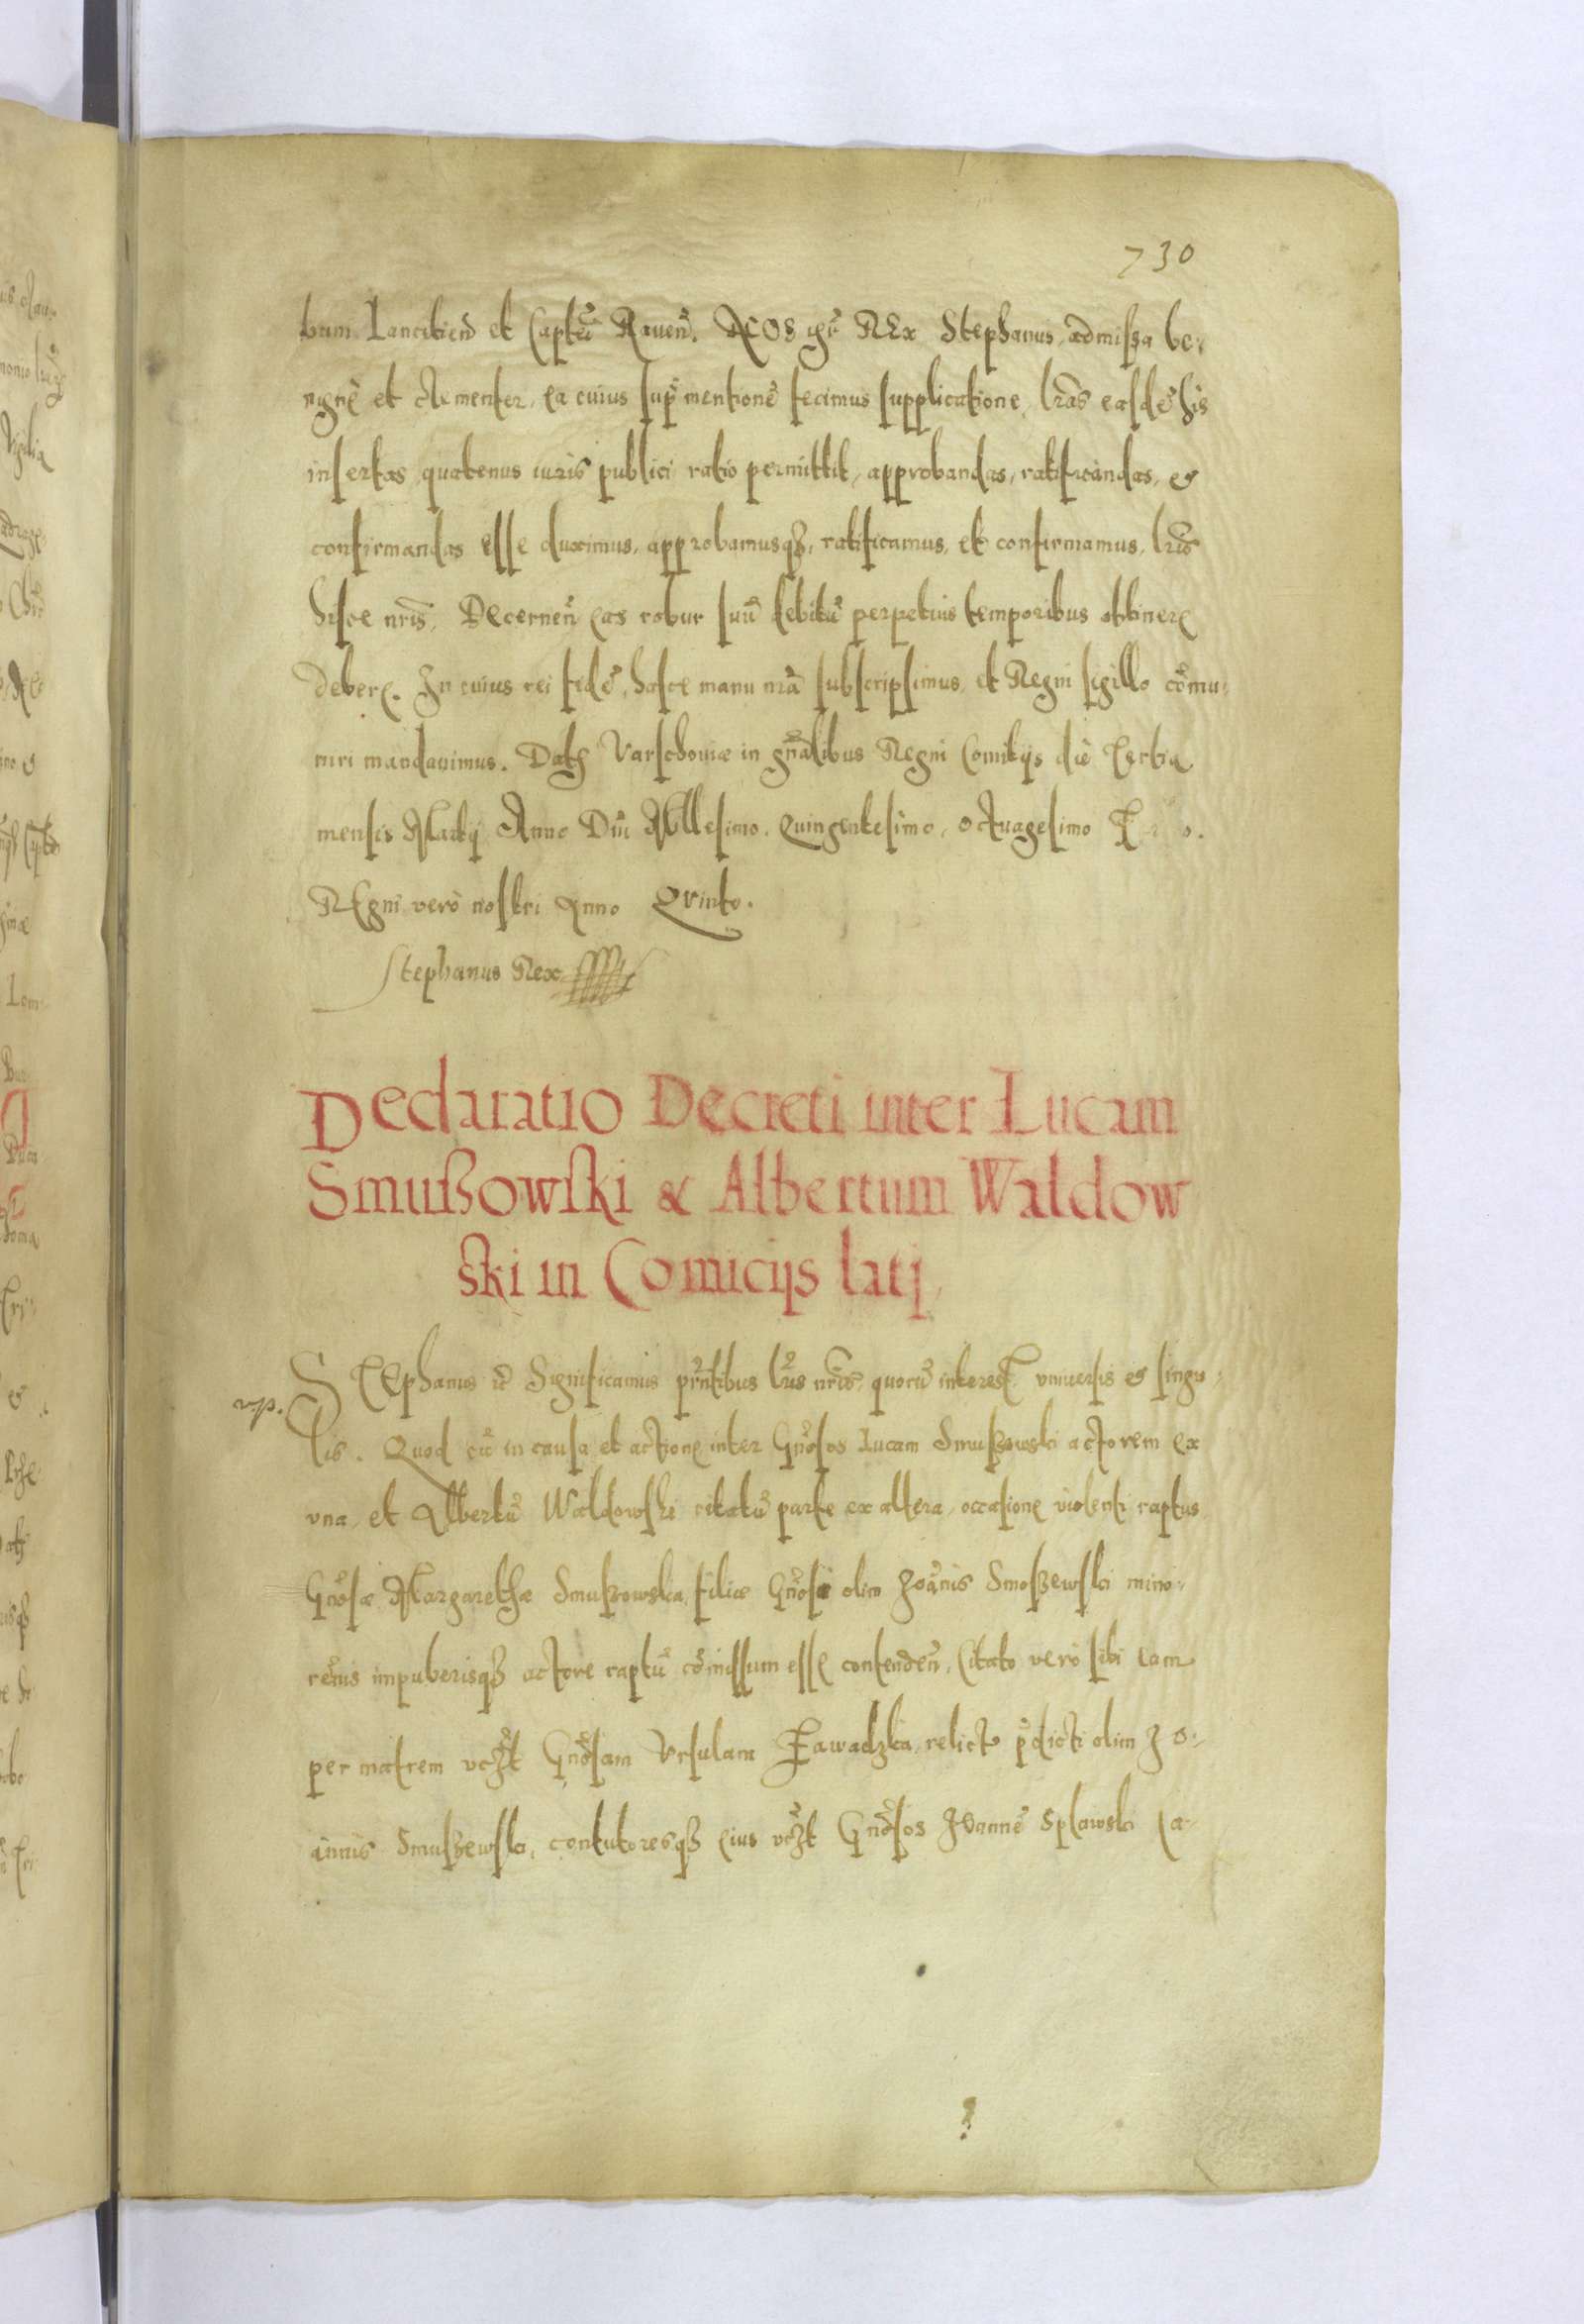 730
bum Lancitien̄ et Captu̅ Raven̄. NOS igr̄ REx Stephanus, admissa be,
nigne et clementer, ea cuius sup̄ mentione̅ fecimus supplicatione, lr̄as easde̅ his
insertas, quatenus iuris publici ratio permittit, approbandas, ratificandas, et
confirmandas esse duximus, approbamusqȝ, ratificamus, et confirmamus, lr̄is
hisce nr̄is, Decernen̄ eas robur suu̅ debitu̅ perpetuis temporibus obtinere
debere. In cuius rei fide̅, hasce manu nr̄a subscripsimus, et Regni sigillo co̅mu-
niri mandavimus. Datȝ Varschoviæ in gn̄alibus Regni Comitijs die Tertia
mensis Martij Anno Dn̄i Millesimo, Quingentesimo, Octuagesimo
REgni vero nostri Anno Qvinto.
Stephanus Rex
Declaratio Decreti inter Lucam
Smußowski & Albertum Waldow
ski in Comicijs latj,
STEphanus ec̄ Significamus pr̄ntibus lr̄is nr̄is, quoru̅ interest, vniuersis et singu-
v.p.
lis. Quod cu̅ in causa et actione inter Gn̄osos Lucam Smußowski actorem ex
vna, et Albertu̅ Waldowski citatu̅ parte ex altera, occasione violenti raptus
Gn̄osæ Margarethæ Smußowska, filiæ Gn̄osi olim Joa̅nis Smoßewski mino-
ren̄is impuberisqȝ actore raptu̅ co̅missum esse contenden̄, Citato vero sibi eam
per matrem vcȝt Gn̄osam Vrsulam Zawadzka, relicta p̄dicti olim Jo-
annis Smußewski, contutoresqȝ eius vcȝt Gn̄osos Joanne̅ Splawski Ca-